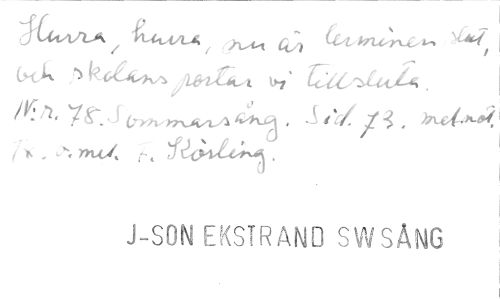 Hurra, hurra, nu är terminen slut,
och skolans portar vi tillsluta.
N:r. 78. Sommarsång. Sid. 73. mel.not.
Tx. o. mel. F. Körling.
J-SON EKSTRAND SW SÅNG